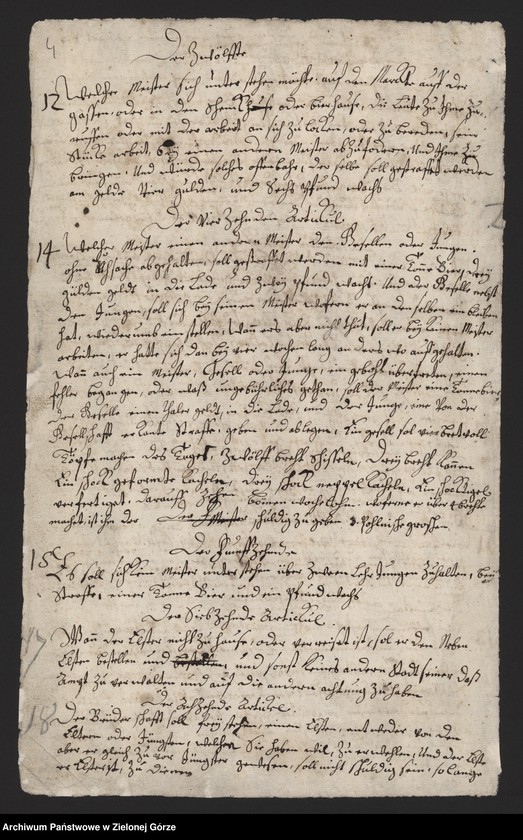 4
Der Zwölffte
12 Welcher Meister sich unter stehen möchte auf den Marckte auff der
gassen, oder in den Schenckhause oder bierhause, die Leute zu ihme zu
ruffen oder mit der arbeit an sich zu locken, oder zu bereden, sein
Stücke arbeit, bey einen anderen Meister abzufodern, Und ihme zu
bringen, Und würde solches offenbahr, der selbe soll gestraffet werden
am gelde Vier gulden, und Sechs Pfund wachs
Der Vier Zehenden Articul
14 Welcher Meister einen andern Meister den Gesellen oder Jungen
ohne Uhrsache abgehalten, soll gestrafft werden mit einer Tonne Bier, drey
gülden geldt in die Lade und Zwey Pfund wachs. Und der Geselle nebst
den Jungen, soll sich bey seinem Meister wofern er an denselben ein bleiben
hat, wiederumb einstellen, Wann ers aber nicht thut, soll er bey keinem Meister
arbeiten, er hatte sich dan bey vier wochen lang anders wo auffgehalten.
Wann auch ein Meister, Gesell oder Junge, ein geboht überstreten, einen
fehler begangen, oder waß ungebührliches gethan, soll der Meister eine Tonne bier,
der Geselle einen thaler geldt, in die Lade, und der Junge, eine von der
Gesellschafft erkante Straffe, geben und ablegen, Ein gesell sol vier bret voll
Töpfe machen des Tages, Zwölff breht Schisseln, Drey breht kannen
Ein schock geformte kacheln, Drey schock Kacheln, Ein schock
verfertiget, darauff woferne er über 4 brehte
machet ist ihm der Meister schuldig zu geben 3 Pohlnische groschen
Der Funff Zehende
15 Es soll sich kein Meister unter stehen über Zween Lehr Jungen zuhalten, bey
Straffe, einer Tonne Bier und ein Pfund wachs
Der Siebzehende Articul.
17 Wann der Elster nicht zu hause, oder verreiset ist, sol er den Neben
Elsten bestellen und bestellen, und sonst keines andern Stadt seiner daß
Ampt zu verwalten und auf die andern achtung zu haben
Der Achzehende Articul.
18 Der Brüderschafft soll frey stehen, einen Elsten, entweder von den
Eltern oder Jüngsten, welchen Sie haben wil, zu erwehlen, Und der Elste
aber er gleich zu vor Jüngster gewesen, soll nicht schuldig sein, so lange
er Elster ist, zu dienen
Archiwum Państwowe w Zielonej Górze